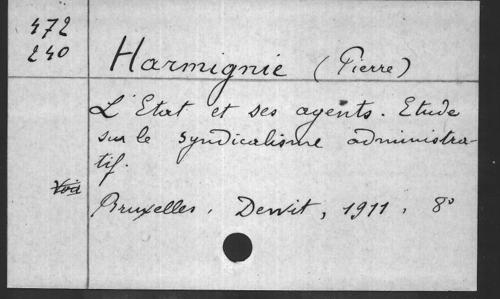 472
240
Harmignie (Pierre)
L'Etat et ses agents. Etude
sur le syndicalisme administra-
tif.
Voir
Bruxelles, Dewit, 1911, 8°